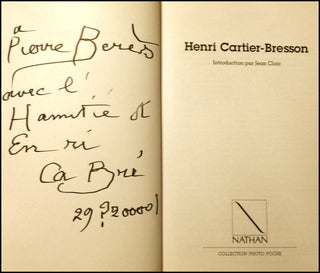 à
Pierre Berès
avec l'
Hamitié de
En ri
Ca Bré
29 ? 20000 !
Henri Cartier-Bresson
Introduction par Jean Clair
NATHAN
COLLECTION PHOTO POCHE